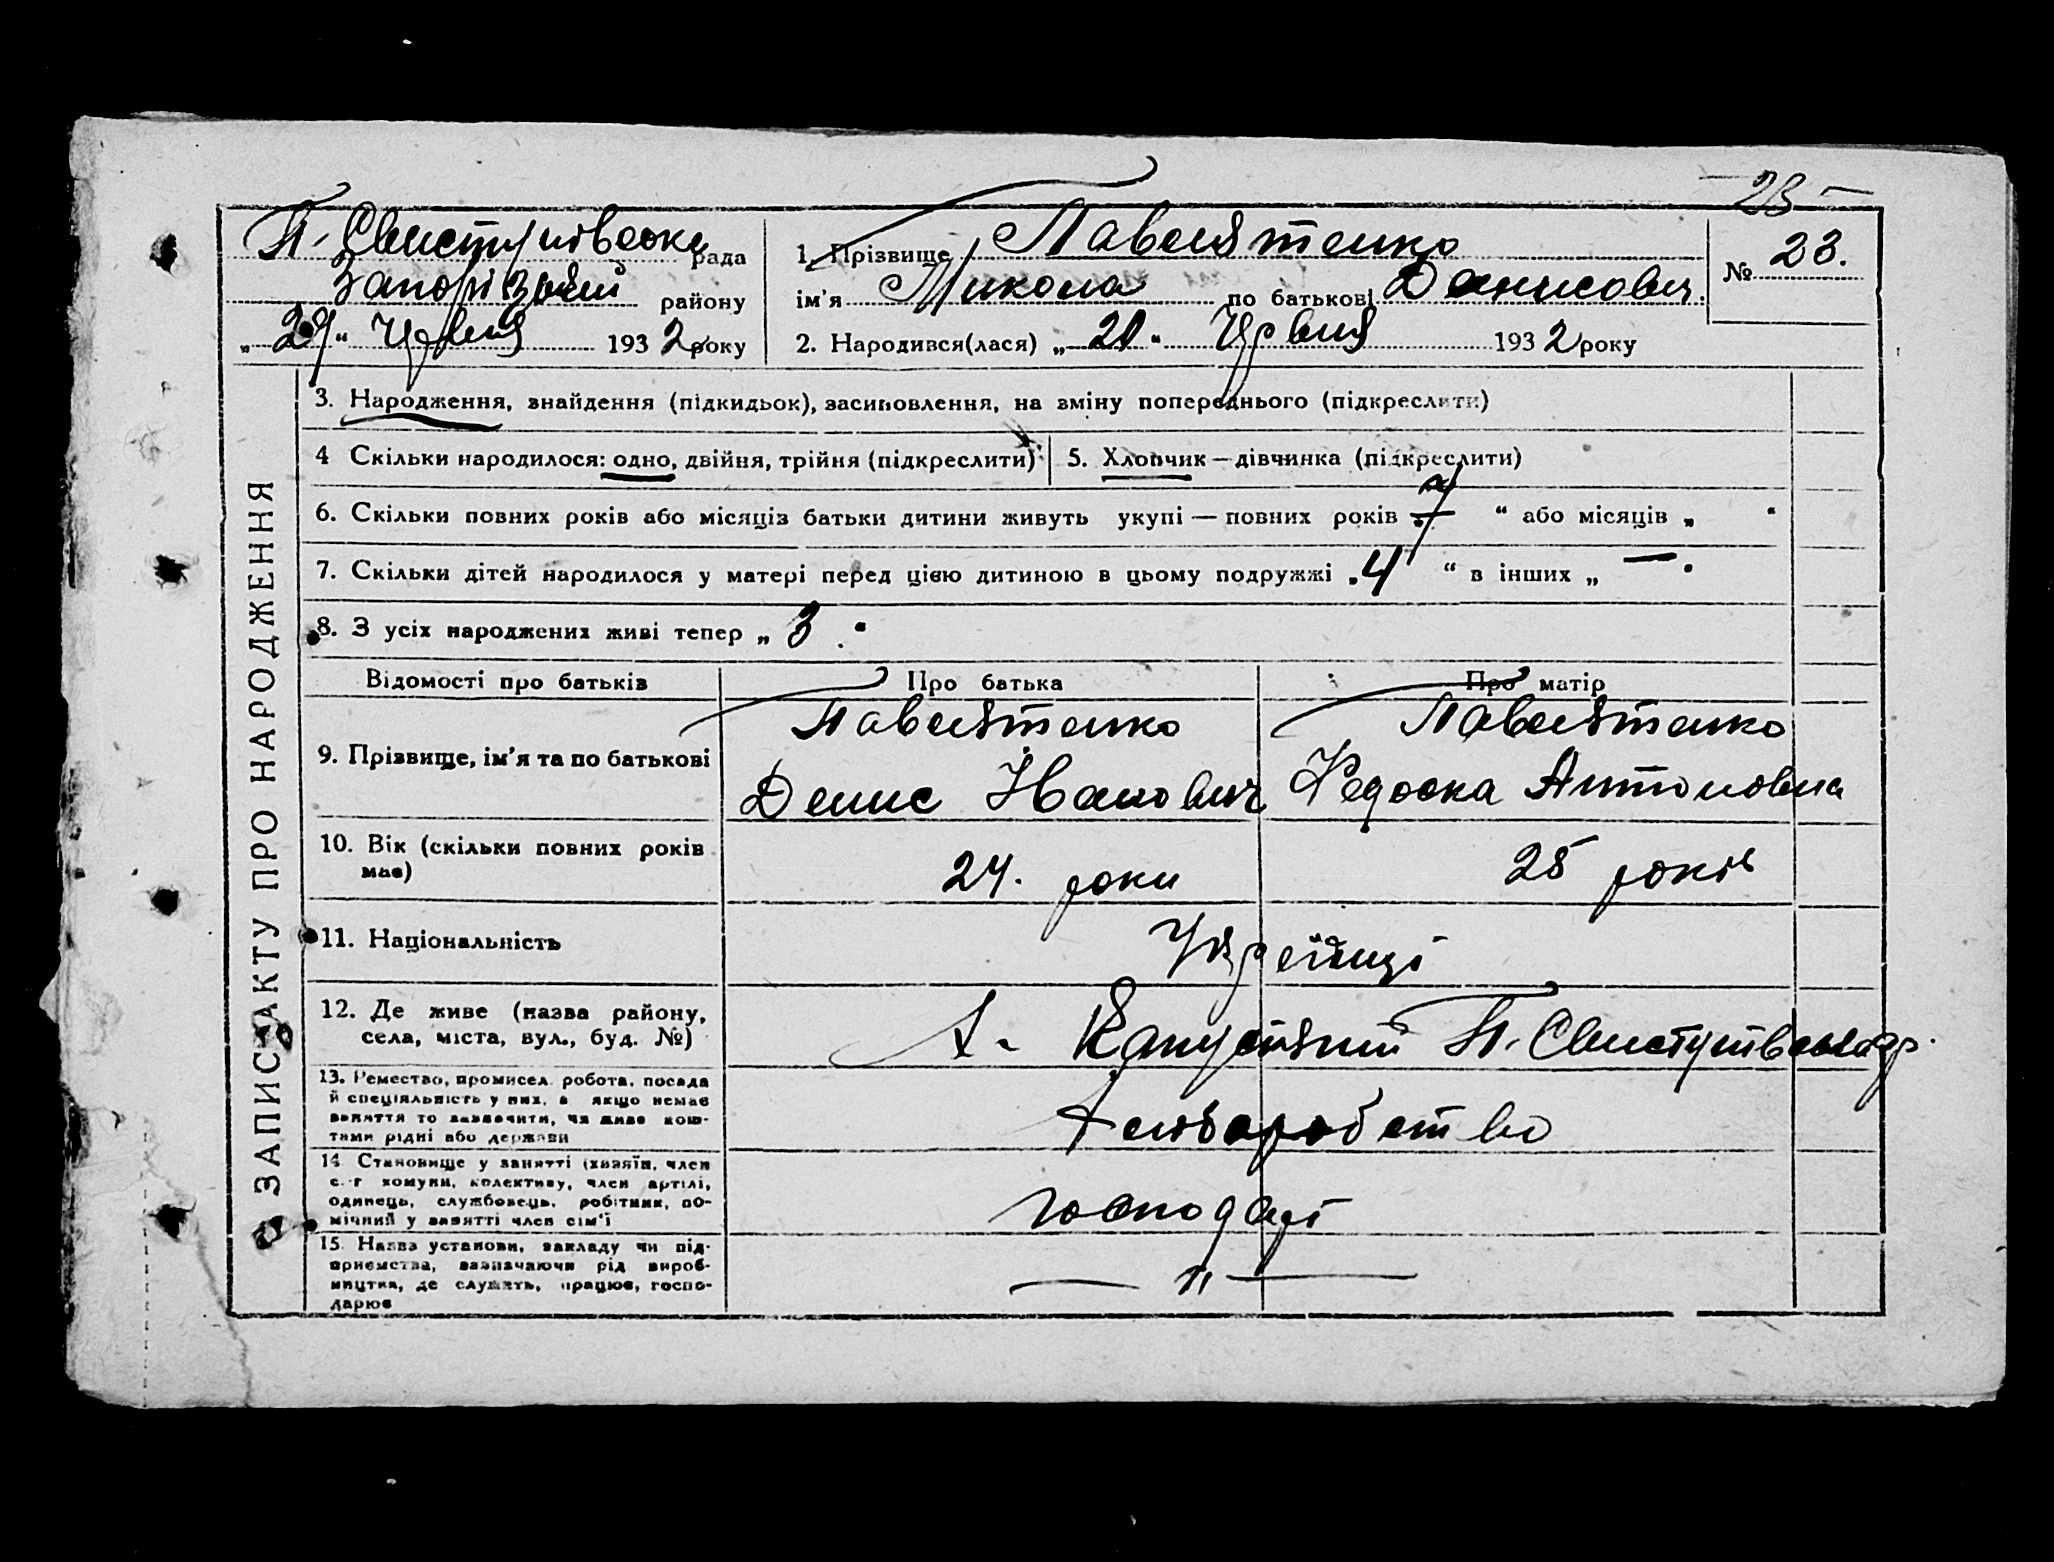 23
П. Свистунівська рада
Запорізький району
„ 27 “ Червня 1932 року
1. Прізвище Павелятенко
ім'я Микола по батькові Денисович.
2. Народився(лася) „ 21 “ Червня 1932 року
№ 23.
ЗАПИС АКТУ ПРО НАРОДЖЕННЯ
3. Народження, знайдення (підкидьок), засиновлення, на зміну попереднього (підкреслити)
4 Скільки народилося: одно, двійня, трійня (підкреслити)
5. Хлопчик — дівчинка (підкреслити)
6. Скільки повних років або місяців батьки дитини живуть укупі — повних років „ 7 “ або місяців „ “
7. Скільки дітей народилося у матері перед цією дитиною в цьому подружжі „ 4 “ в інших „ — “
8. З усіх народжених живі тепер „ 3 “
Відомості про батьків
Про батька
Про матір
9. Прізвище, ім'я та по батькові
Павелятенко
Денис Іванович
Павелятенко
Федоска Антоновна
10. Вік (скільки повних років
має)
24. роки
25 років
11. Національність
Україці
12. Де живе (назва району,
села, міста, вул., буд. №)
Х. Капустяний П. Свистунівської
13. Ремество, промисел, робота, посада
й спеціяльність у них, а якщо немає
заняття то зазначити, чи живе кош-
тами рідні або держави
Хлібаробство
14 Становище у занятті (хазяїн, член
с.-г комуни, колективу, член артілі,
одинець, службовець, робітник, по-
мічний у занятті член сім'ї
господарі
15. Назва установи, закладу чи під-
приємства, зазначаючи рід вироб-
ництва, де служить, працює, госпо-
дарює
— „ —